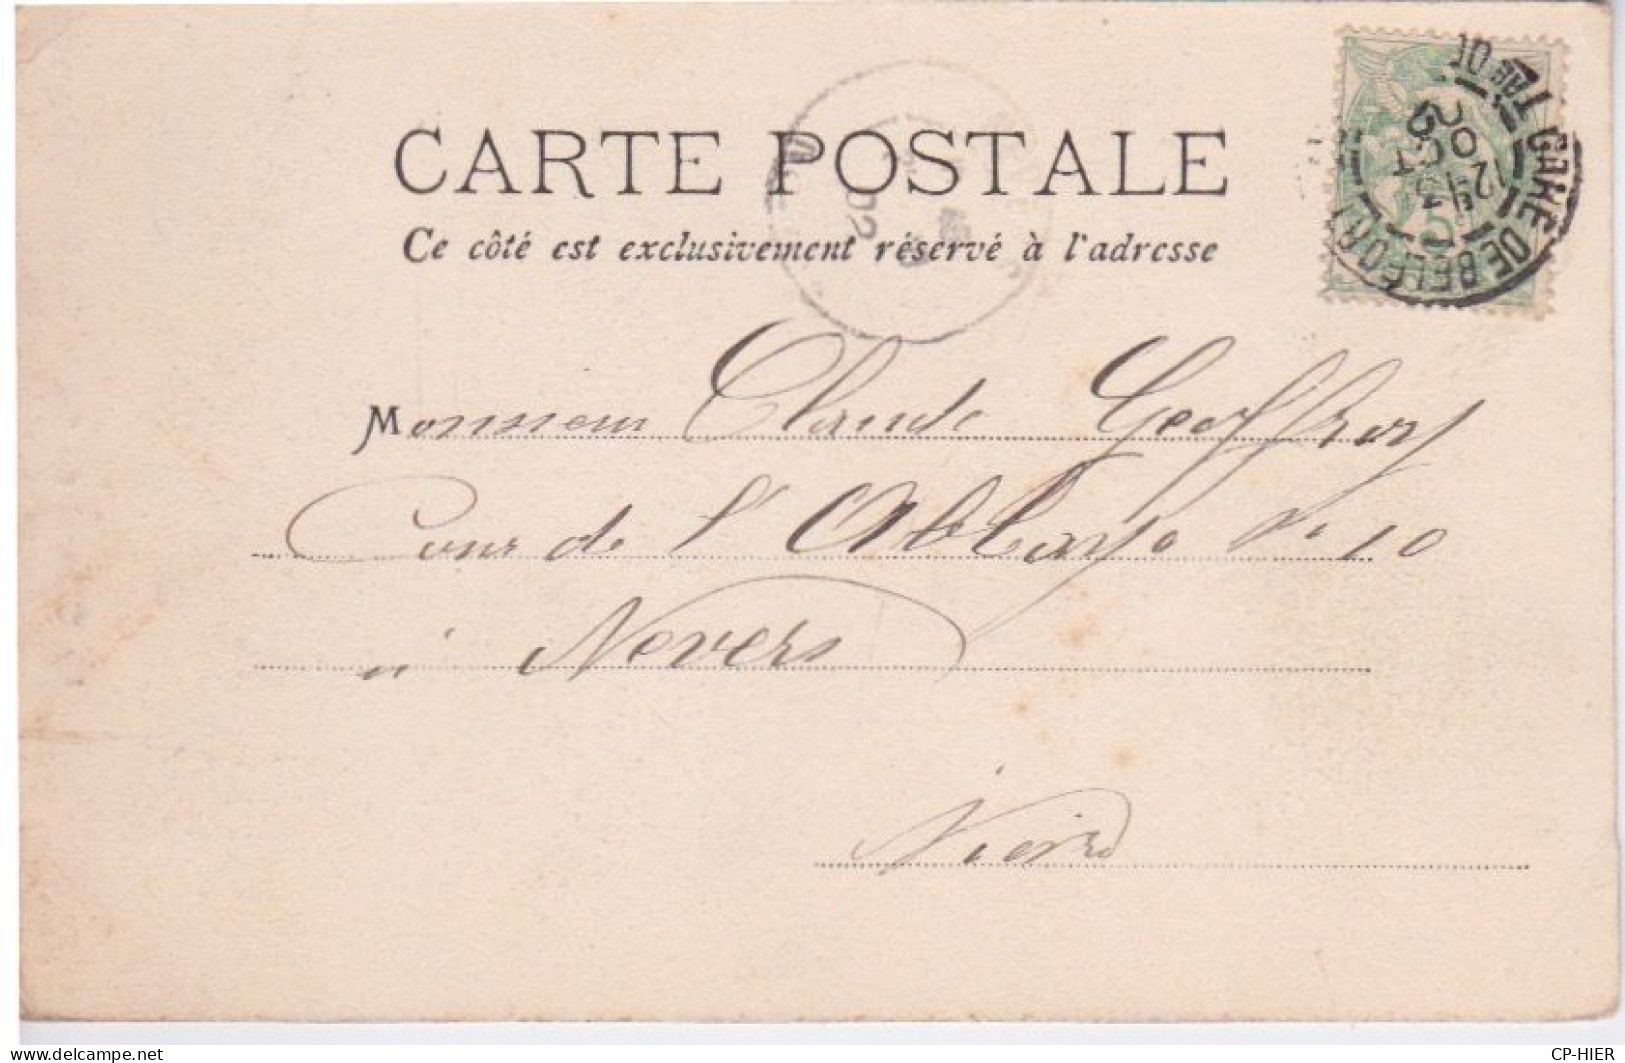 CARTE POSTALE
Ce côté est exclusivement réservé à l'adresse
Monsieur Claude Geoffroy
Cour de l'Abbaye N° 10
à Nevers
Nièvre
GARE DE BELFORT
12 45
OCT
02
02
5
www.delcampe.net
CP-HIER